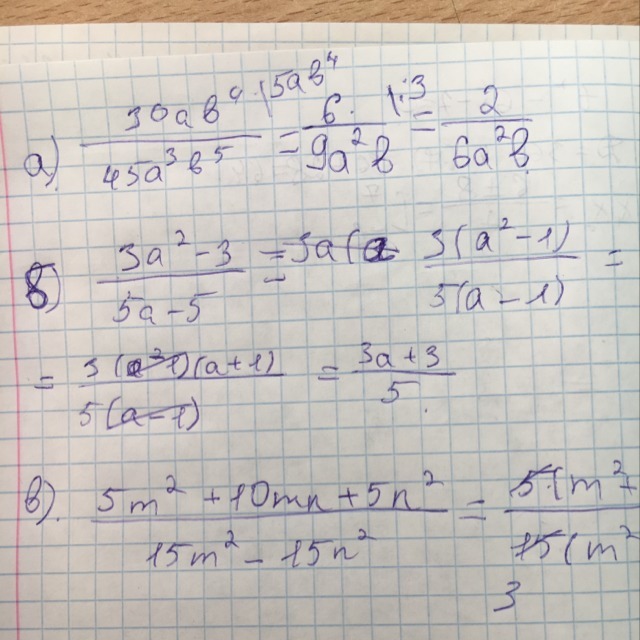 а) 30ab⁴/45a³b⁵ |5ab⁴ = 6/9a²b |:3 = 2/6a²b
б) 3a² - 3/5a - 5 = 3a( 3(a² - 1)/5(a - 1) =
= 3(a - 1)(a + 1)/5(a - 1) = 3a + 3/5.
в). 5m² + 10mn + 5n²/15m² - 15n² = 5(m² +/15(m²
3